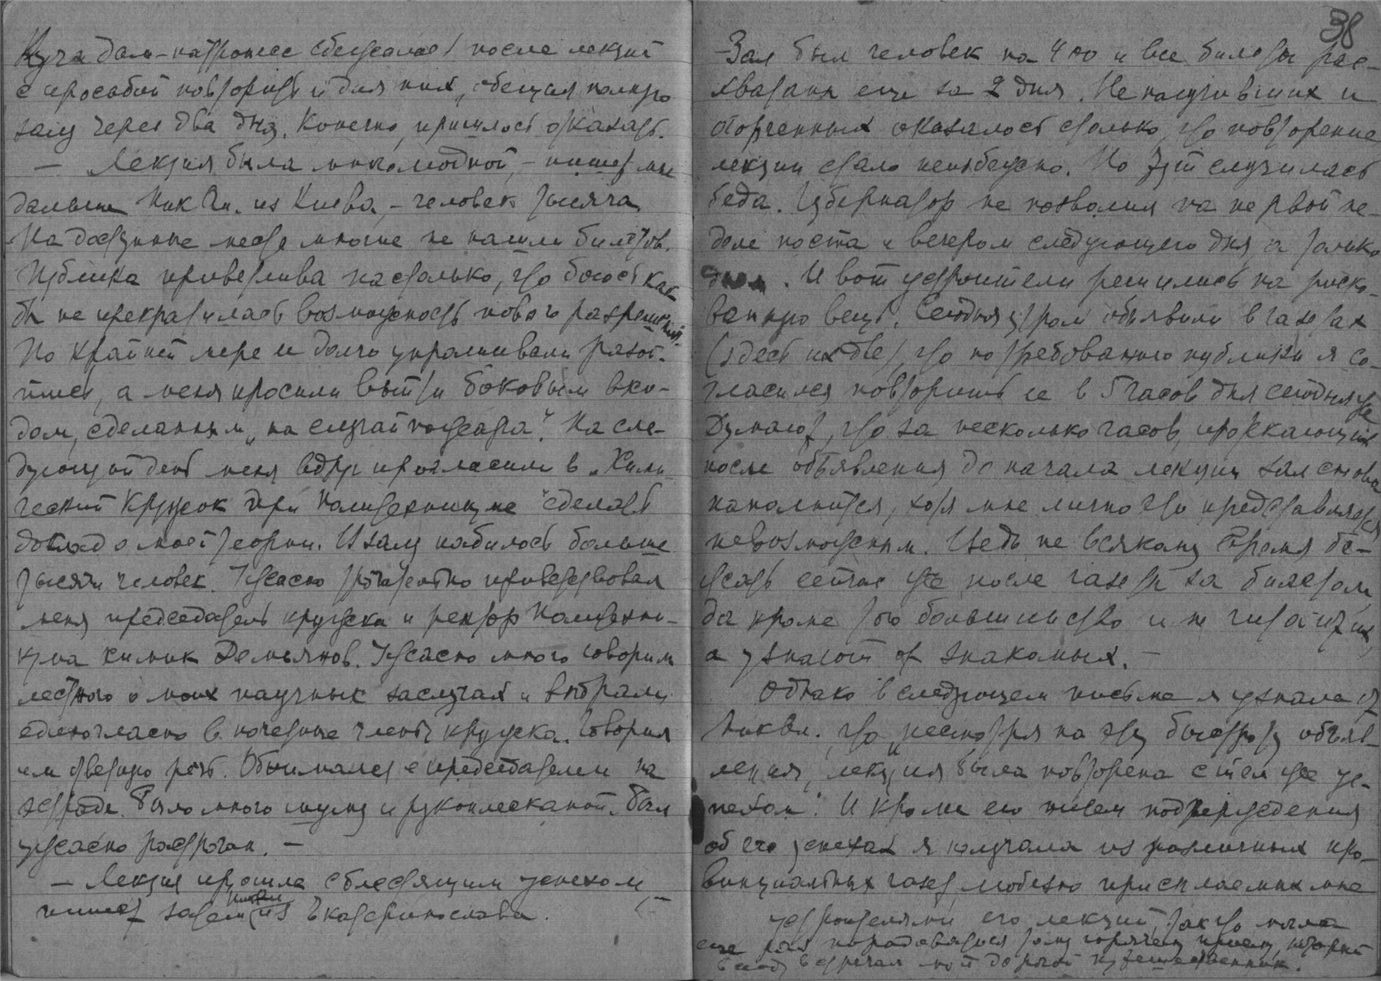 Куча дам-патронесс сбежалась после лекций
с просьбой повторить и для них, обещая полную
залу через два дня. Конечно, пришлось отказать.
— Лекция была многолюдной, — пишет мне
дальше Ник Ал. из Киева, — человек тысяча
На доступные места многие не нашли билетов.
Публика приветлива настолько, что боюсь как
бы не прекратилась возможность новых разрешений.
По крайней мере и долго упрашивали разой-
тись, а меня просили выйти боковым вхо-
дом, сделанным „на случай пожара". На сле-
дующий день меня вдруг пригласили в „Хими-
ческий кружок при Политехникуме" сделать
доклад о моей теории. И залу набилось больше
тысячи человек. Ужасно трогательно приветствовал
меня председатель кружка и ректор Политехни-
кума химик Дементьев. Ужасно много говорили
лестного о моих научных заслугах и выбрали
единогласно в почетные члены кружка. Говорил
им ответную речь. Обнимался с председателем на
эстраде. Было много шуму и рукоплесканий. Был
ужасно растроган. —
— Лекция прошла с блестящим успехом
пишет затем из Екатеринослава.
38
— Зал был человек на 400 и все билеты рас-
хватали еще за 2 дня. Не получивших и
огорченных оказалось столько, что повторение
лекции стало неизбежно. Но тут случилась
беда. Губернатор не позволил на первой не-
деле поста и вечером следующего дня, а только
днем. И вот устроители решились на риско-
ванную вещь. Сегодня утром объявили в газетах
(здесь их две), что по требованию публики я со-
гласился повторить ее в 5 часов дня сегодня же
Думают, что за несколько часов, протекающих
после объявления до начала лекции зал снова
наполнится, хотя мне лично это представляется
невозможным. Ведь не всякому время бе-
жать сейчас же после газеты за билетом,
да кроме того большинство и не читает их,
а узнают от знакомых. —
Однако в следующем письме я узнала от
Ник Ал. что „несмотря на эту быстроту объяв-
ления, лекция была повторена с тем же ус-
пехом". И кроме его писем подтверждения
об его успехах я получала из различных про-
винциальных газет любезно присылаемых мне
устроителями его лекций, так что могла
еще раз порадоваться тому горячему приему, который
всюду встречал мой дорогой путешественник.